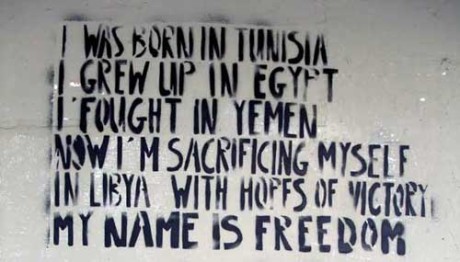 I WAS BORN IN TUNISIA
I GREW UP IN EGYPT
I'FOUGHT IN YEMEN
NOW I'M SACRIFICING MYSELF
IN LIBYA WITH HOPFS OF VICTORY
MY NAME IS FREEDOM